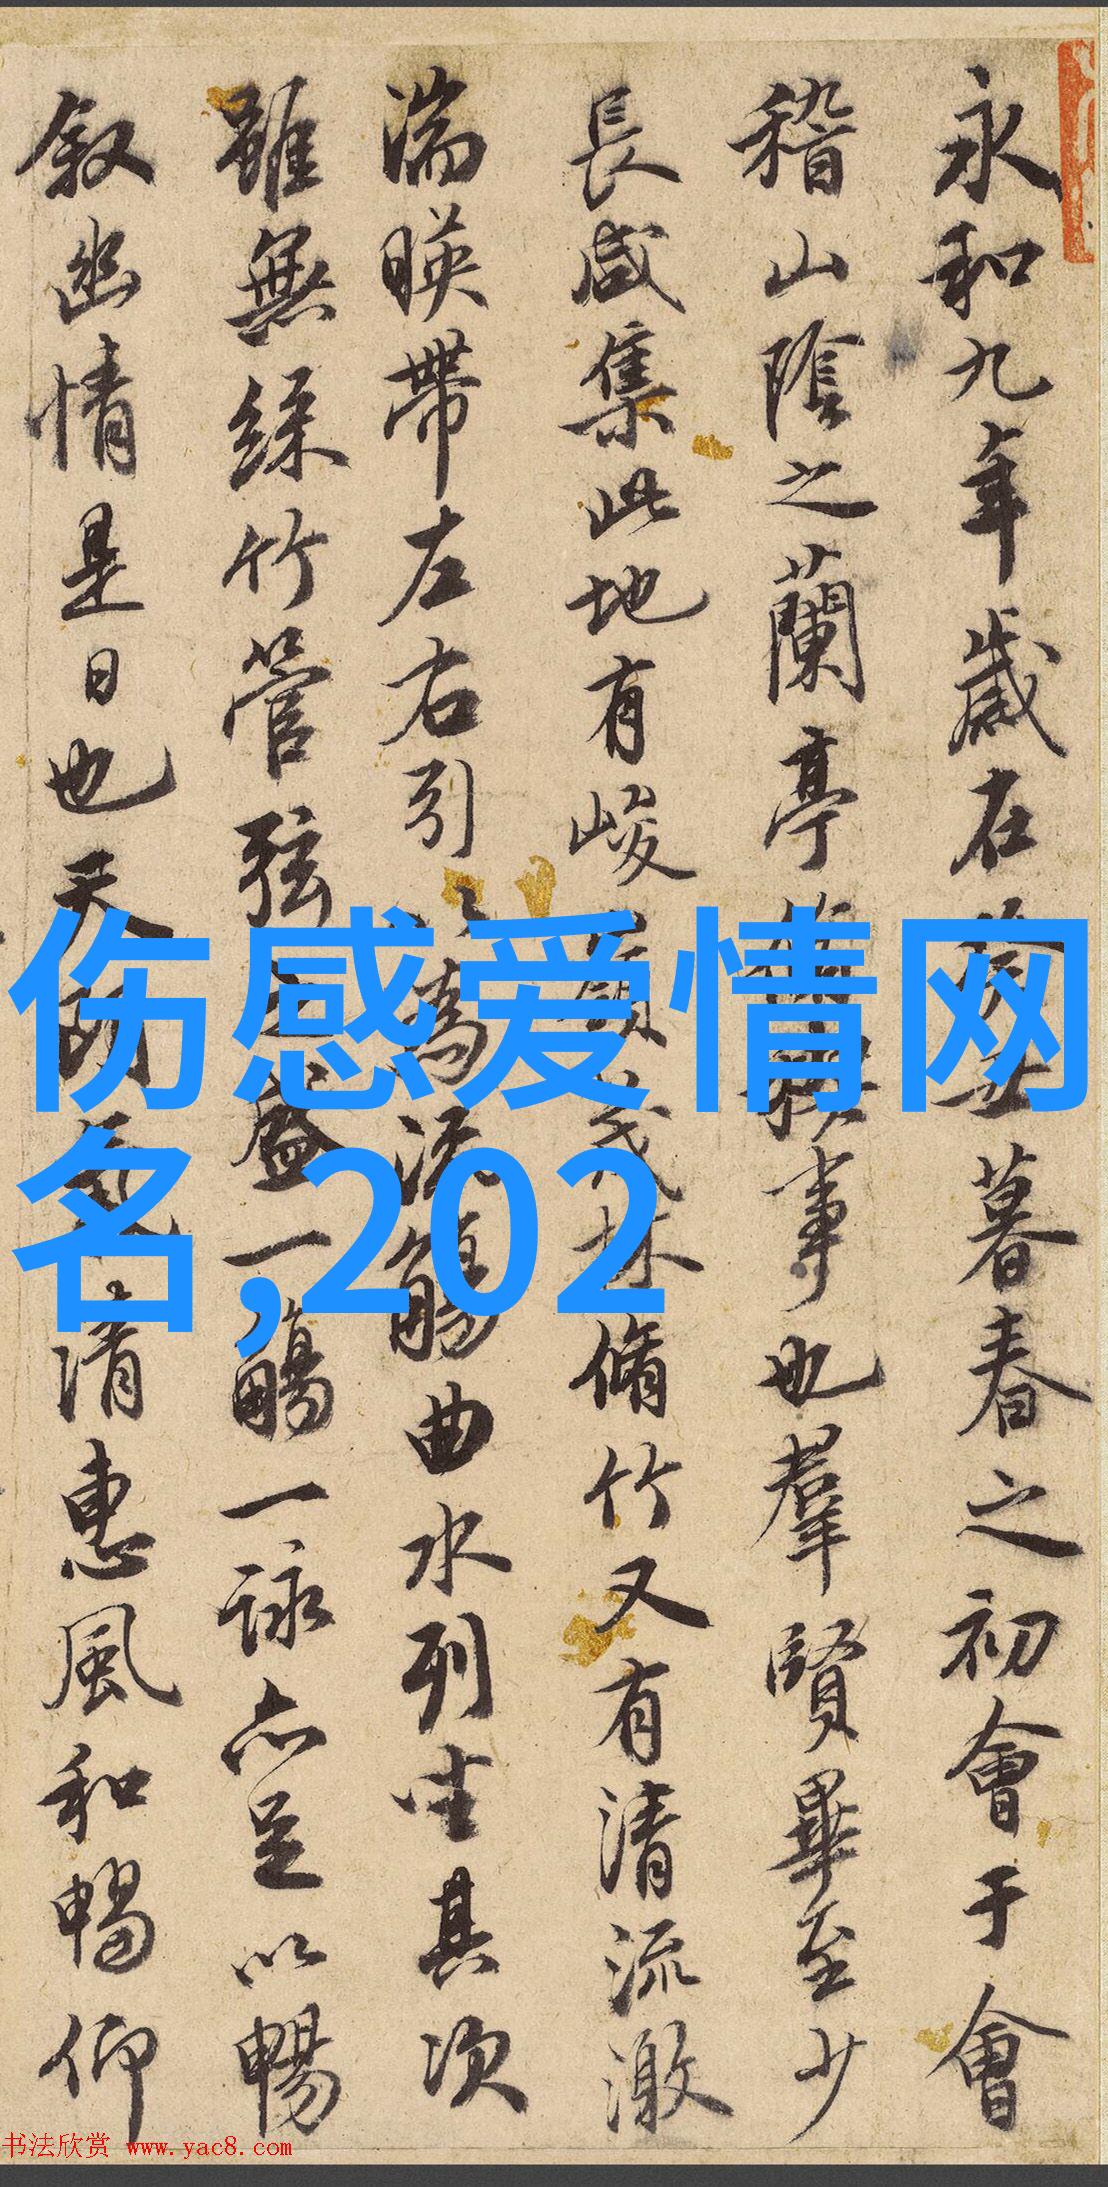 永和九年歲在癸丑暮春之初會于會
稽山陰之蘭亭脩禊事也羣賢畢至少
長咸集此地有峻領茂林脩竹又有清流激
湍暎帶左右引以為流觴曲水列坐其次
雖無絲竹管弦之盛一觴一詠亦足以暢
叙幽情是日也天朗氣清惠風和暢仰
伤感爱情网
名,202
书法欣赏 www.yac8.com